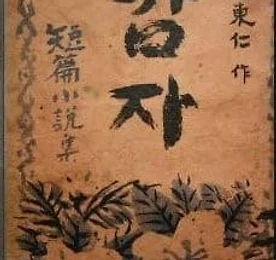 東仁 作
감자
短篇小說集